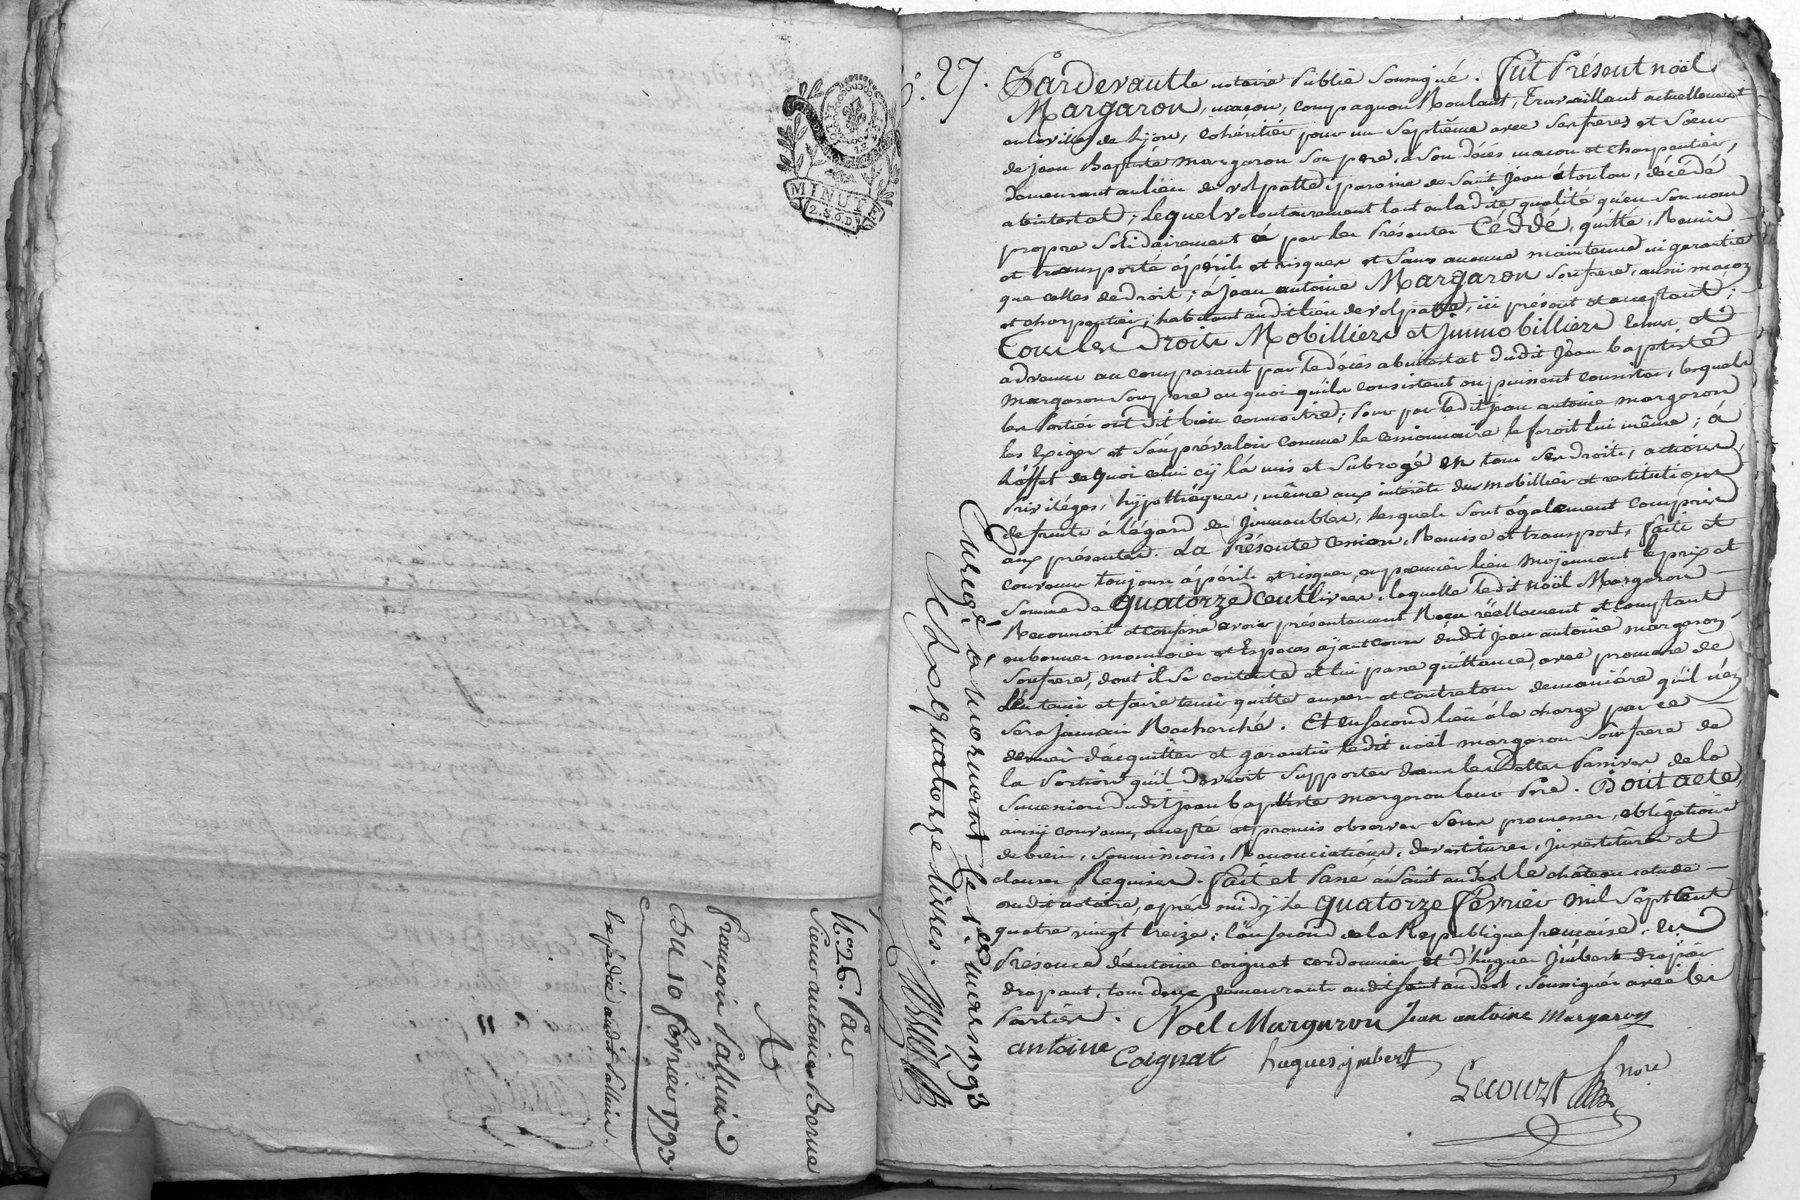 MINUTE
2.S.6.D.
N.° 26. Par
Sieur antoine Borne
A
françois Palluis
Du 10 fevrier 1793.
Expédié audit Palluis.
N.° 27. Pardevant le notaire Public soussigné. Fut Présent noël
Margaron, maçon, compagnon Roulant, travaillant actuellement
en la ville de Lyon, cohéritier pour un septième avec ses freres et soeur
de jean Baptiste margaron son pere, à son décés maçon et charpentier,
demeurant au lieu de volpatte, paroisse de saint jean detoulon, décédé
abintestat; Lequel volontairement tant en ladite qualité qu'en son nom
propre solidairement à par les Présentes Céddé, quitté, Remis
et transporté à périls et risques et sans aucune maintenue ni garantie
que celles de droit; à jean antoine Margaron son frere, aussi maçon
et charpentier, habitant audit lieu de volpatte, ici présent et acceptant;
Tous les Droits Mobilliers et Immobilliers échus et
advenus au comparant par le décés abintestat dudit jean baptiste
margaron son pere en quoi qu'ils consistent ou puissent consister, lesquels
les Parties ont dit bien connoitre; pour par ledit jean antoine margaron
les Exiger et s'en prévaloir comme le cessionnaire le feroit lui même; à
l'éffet de quoi celui cÿ l'a mis et subrogé en tous ses droits, actions,
Priviléges, hÿpothéques, même aux intérêts du mobillier et restitutions
de fruits à l'égard des jmmeubles, lesquels sont également compris
aux présentes. La Présente cession, Remise et transport, faite et
convenue toujours à périls et risques, en premier lieu moÿennant le prix et
somme de quatorze cent livres, laquelle ledit noël Margaron
Reconnoit et confesse avoir presentement Reçu réellement et comptant
en bonnes monnoies et Espéces aÿant cours dudit jean antoine margaron
son frere, dont il se contente et lui passe quittance, avec promesse de
l'en tenir et faire tenir quitte envers et contre tous de maniére qu'il n'en
sera jamais Recherché. Et en second lieu à la charge par ce
dernier d'acquitter et garantir ledit noël margaron son frere de
la Portion qu'il devroit supporter dans les Dettes Passives de la
succession dudit jean baptiste margaron leur Pere. Dont acte,
ainsy convenu, accepté et promis observer sous promesses, obligations
de biens, soumissions, Renonciations, devestitures, jnvestitures et
clauses Requises. Fait et Passé à saint andéol le château etude
dudit notaire, après midÿ Le quatorze février mil sept cent
quatre vingt treize; l'an second de la Republique française; En
Présence d'antoine coignat cordonnier et d'hugues jmbert drapier
drapant, tous deux demeurants audit saint andéol, soussignés avec les
Parties. Noel Margaron Jean antoine margaron
antoine Coignat hugues jmbert
Lecourt nore
Enregé. à mornant le 1.er mars 1793
Reçu quatorze livres.